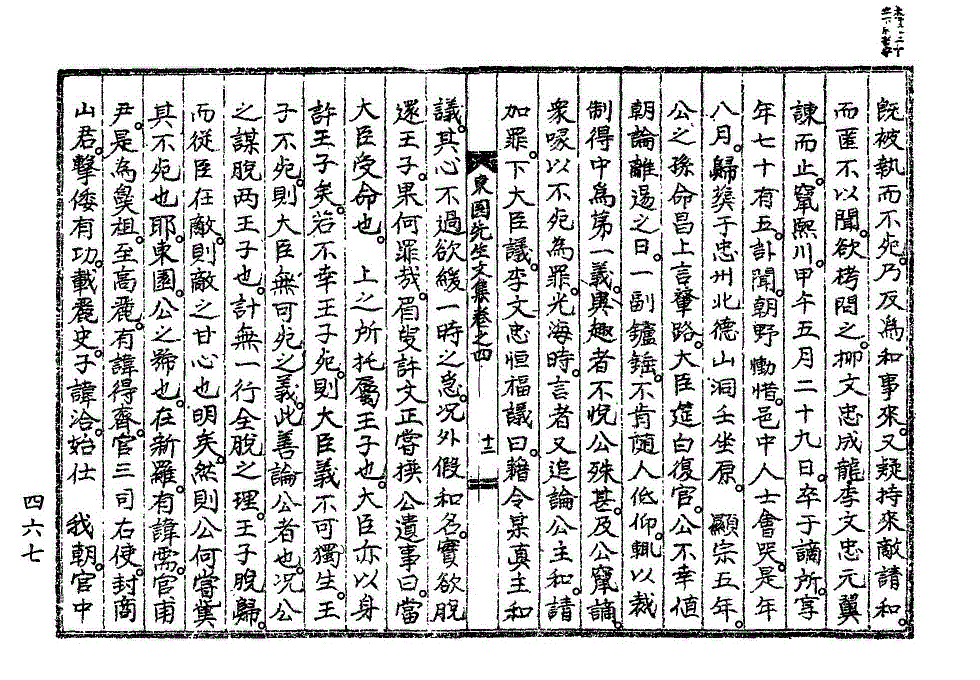 旣被執而不死乃反爲和事來又疑持來敵請和
而匿不以聞欲栲問之柳文忠成龍李文忠元翼
諫而止竄熙川甲午五月二十九日卒于謫所享
年七十有五訃聞朝野慟惜邑中人士會哭是年
八月歸葬于忠州北德山洞壬坐原 顯宗五年
公之孫命昌上言肇路大臣筵白復官公不幸值
朝論離逷之日一副鑪鞴不肯隨人低仰輒以裁
制得中爲第一義與趣者不悅公殊甚及公竄謫
衆喙以不死爲罪光海時言者又追論公主和請
加罪下大臣議李文忠恒福議曰籍令某眞主和
東園先生文集卷之四 十三
議其心不過欲緩一時之急況外假和名實欲脫
還王子果何罪哉眉叟許文正嘗撰公遺事曰當
大臣受命也 上之所托屬王子也大臣亦以身
許王子矣若不幸王子死則大臣義不可獨生王
子不死則大臣無可死之義此善論公者也況公
之謀脫两王子也計無一行全脫之理王子脫歸
而從臣在敵則敵之甘心也明矣然則公何嘗冀
其不死也耶東園公之號也在新羅有諱需官甫
尹是爲鼻祖至高麗有諱得齊官三司右使封商
山君擊倭有功載麗史子諱洽始仕 我朝官中
四六七